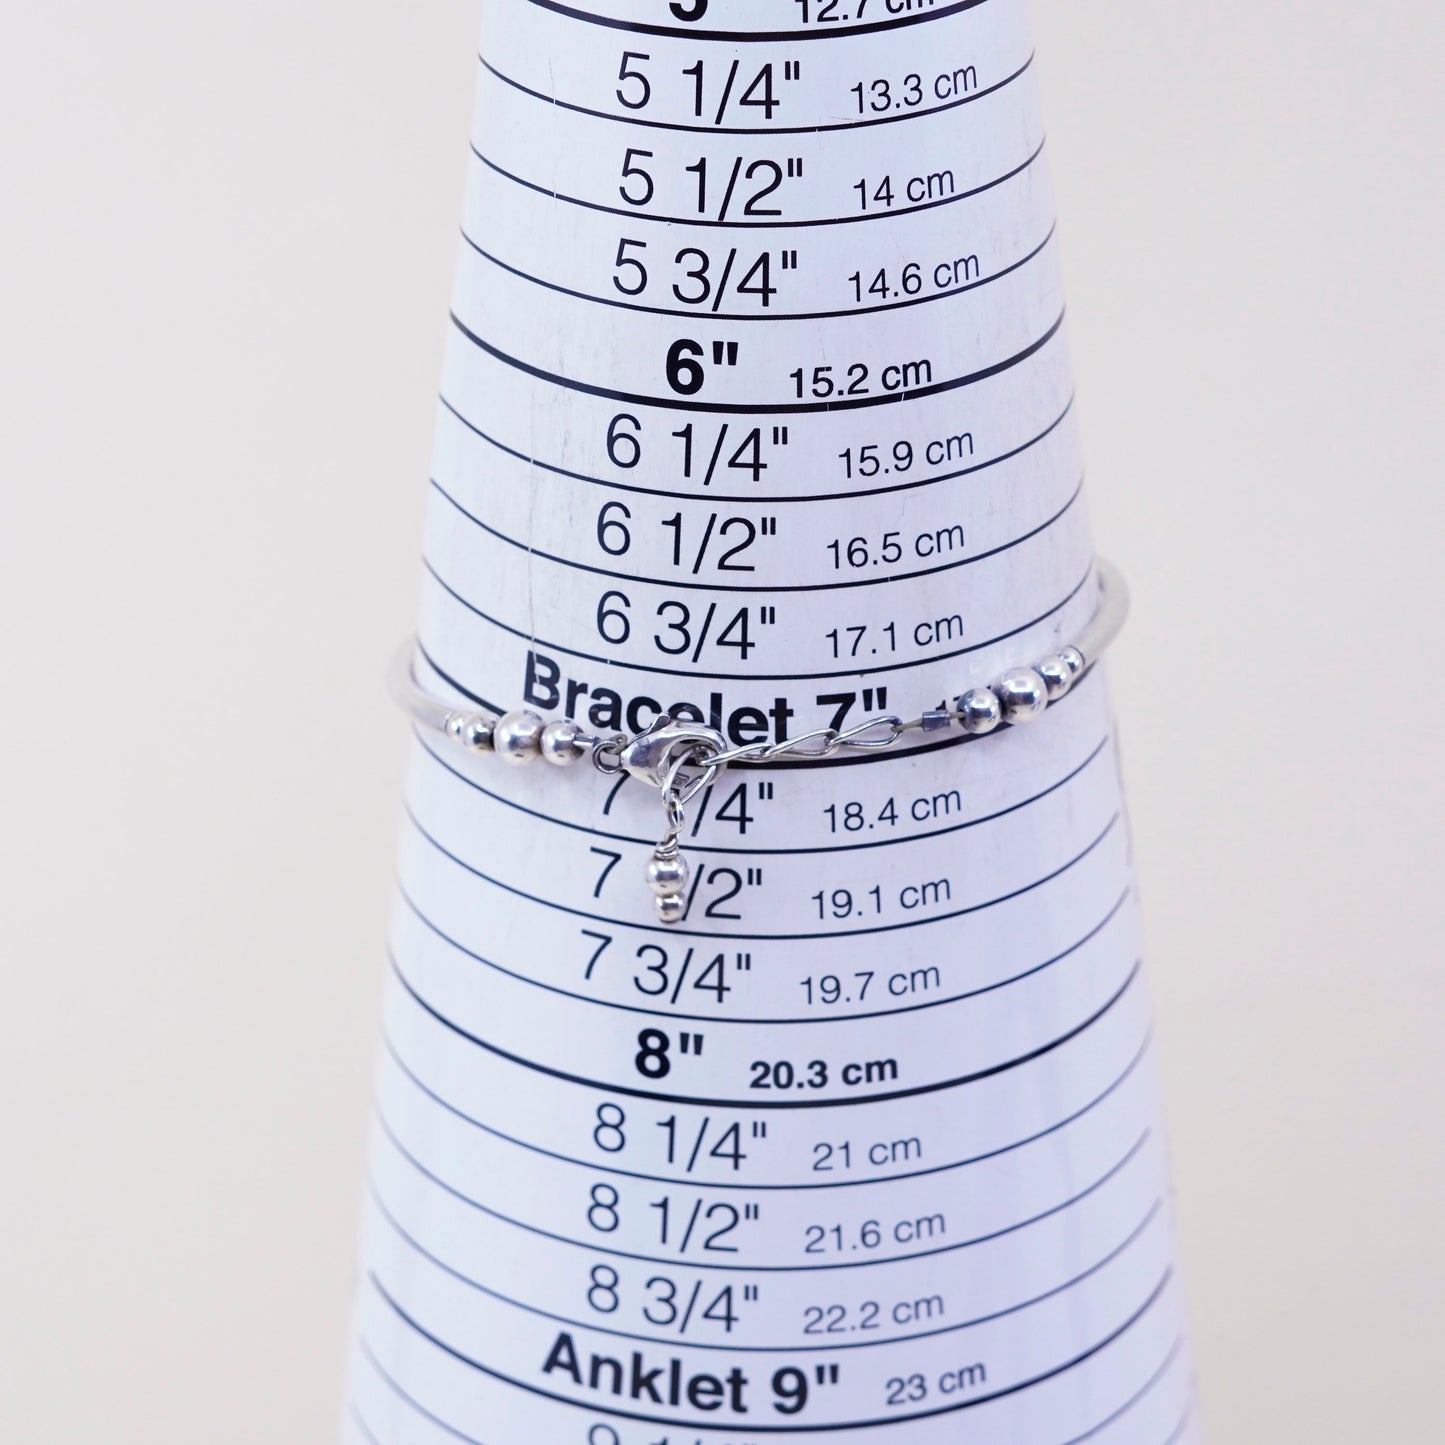 5" 12.7 cm
5 1/4" 13.3 cm
5 1/2" 14 cm
5 3/4" 14.6 cm
6" 15.2 cm
6 1/4" 15.9 cm
6 1/2" 16.5 cm
6 3/4" 17.1 cm
Bracelet 7"
7 /4" 18.4 cm
7 /2" 19.1 cm
7 3/4" 19.7 cm
8" 20.3 cm
8 1/4" 21 cm
8 1/2" 21.6 cm
8 3/4" 22.2 cm
Anklet 9" 23 cm